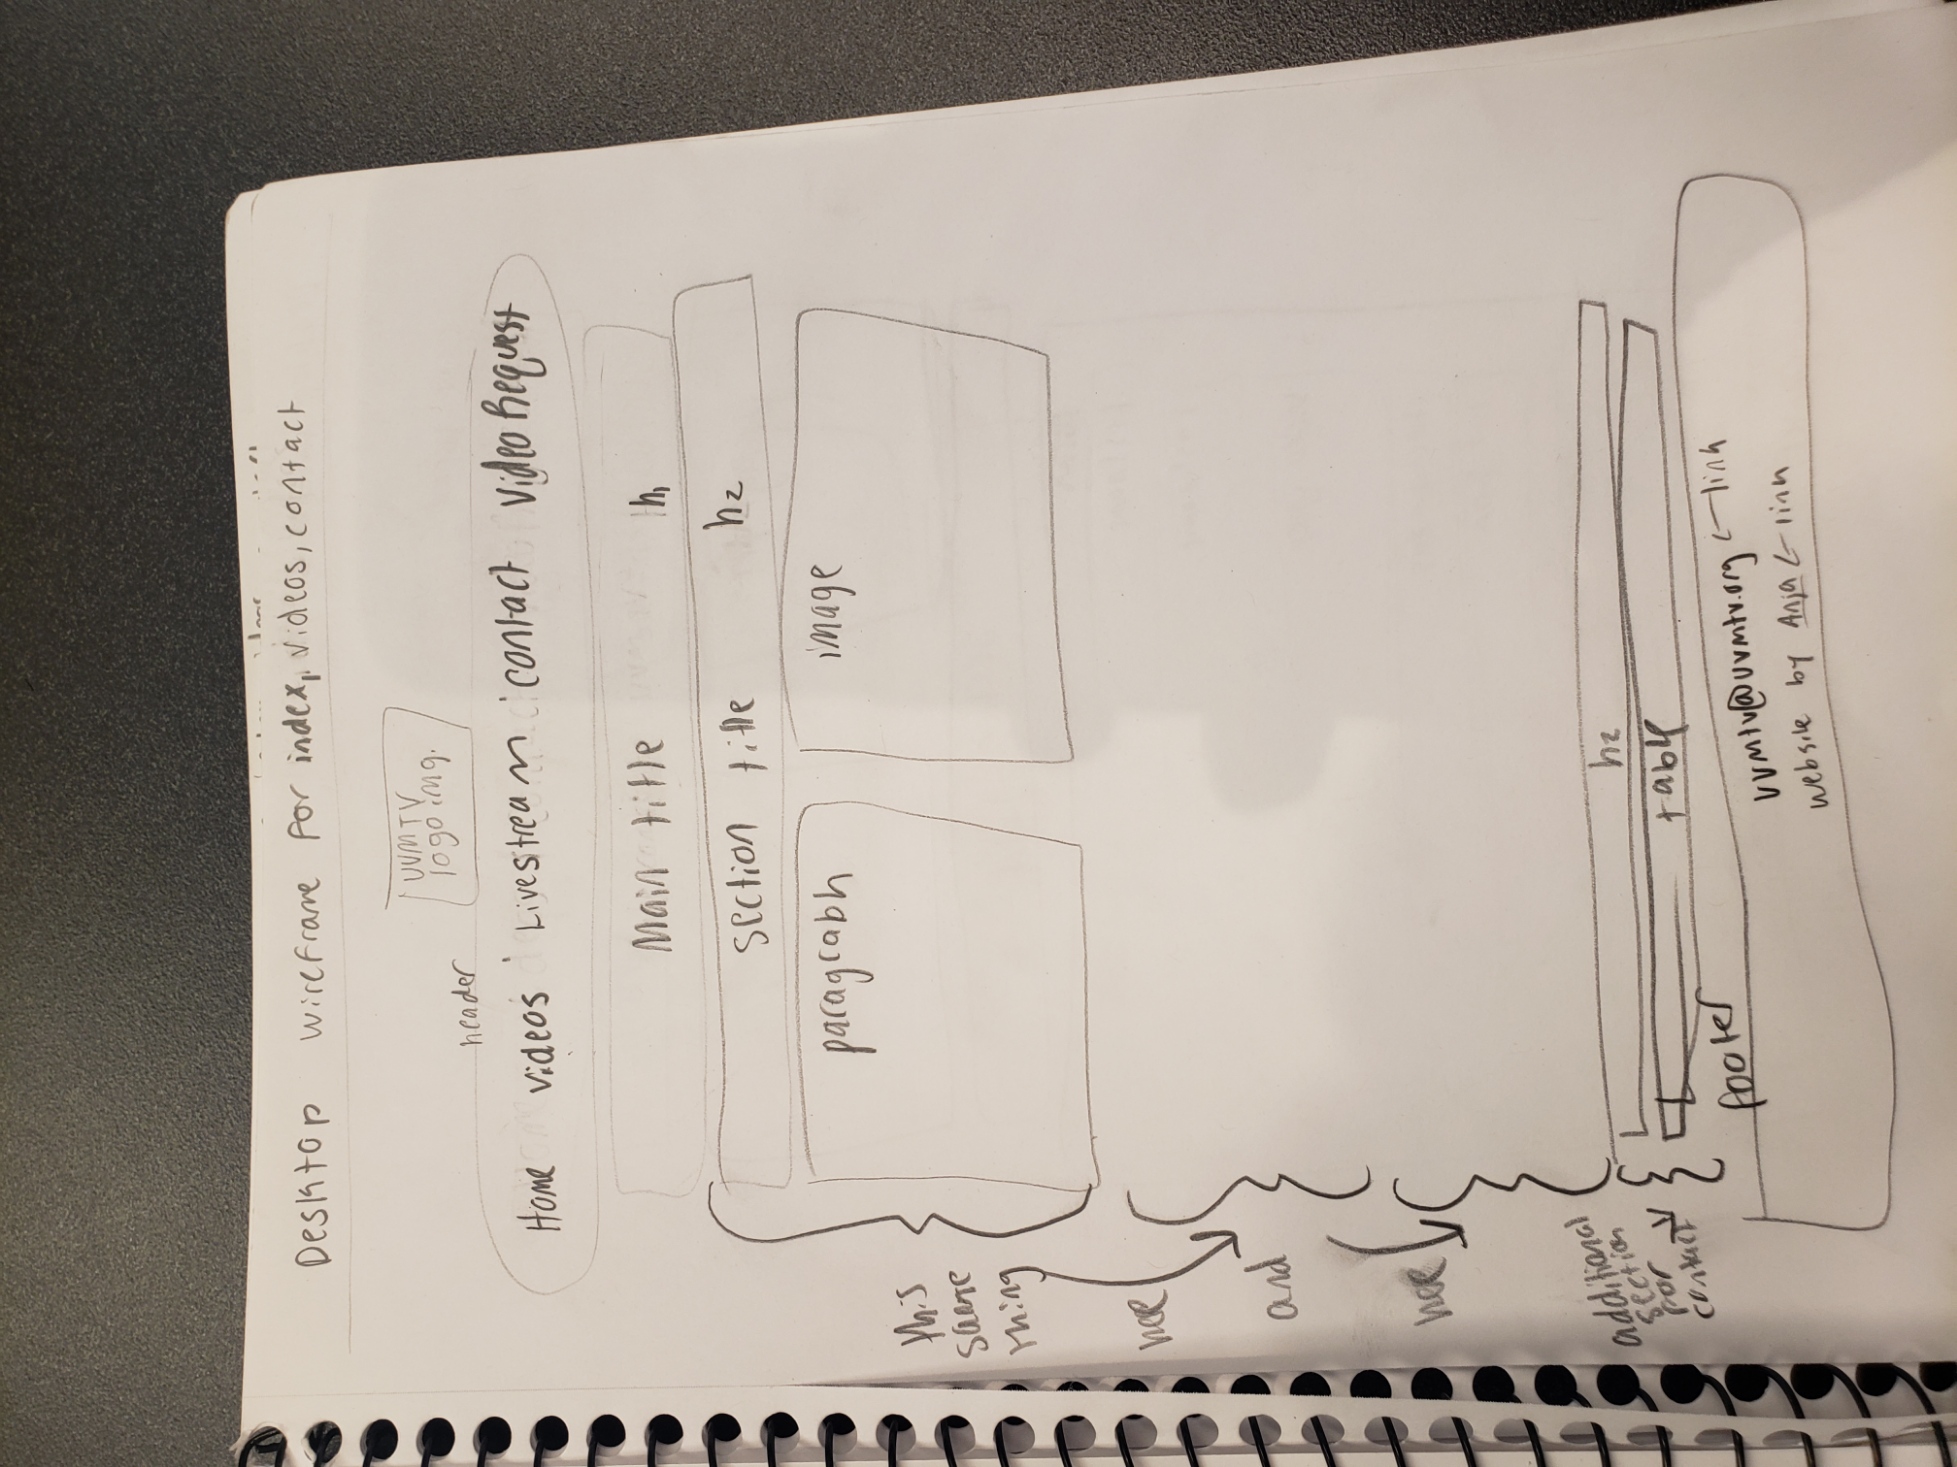 Desktop wireframe for index, videos, contact
UVMTV
logo img.
header
Home videos Livestream contact Video Request
Main title h1
section title h2
paragraph image
this
same
thing
here
and
here
additional
section
for
contact
h2
table
footer
uvmtv@uvmtv.org ← link
website by Anja ← link